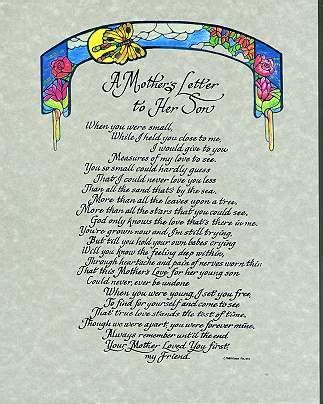 A Mother's Letter
to Her Son
When you were small,
While I held you close to me,
I would give to you
Measures of my love to see.
You so small could hardly guess
That I could never love you less
Than all the sand that's by the sea,
More than all the leaves upon a tree.
More than all the stars that you could see,
God only knows the love that's there in me.
You're grown now and I'm still trying,
But till you hold your own babes crying
Will you know the feeling deep within,
Through heartache and pain of nerves worn thin,
That this Mother's Love for her young son
Could never, ever be undone
When you were young I set you free,
To find for yourself and come to see
That true love stands the test of time.
Though we were apart, you were forever mine,
Always remember until the end
Your Mother Loved You first
my Friend.